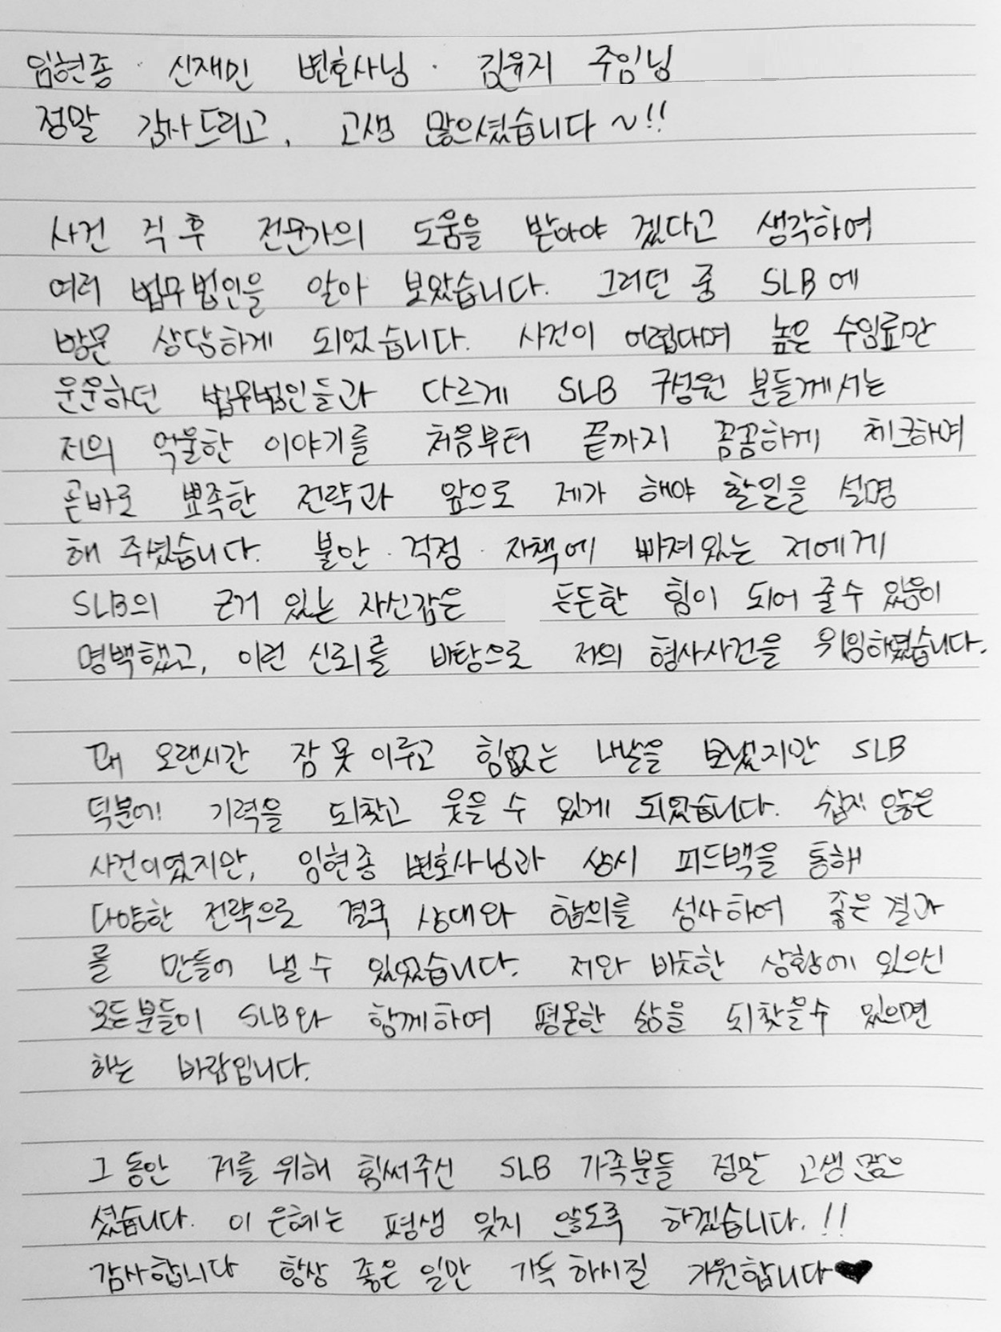 임현종 · 신재민 변호사님 · 김유지 주임님
정말 감사드리고, 고생 많으셨습니다 ~!!
사건 직후 전문가의 도움을 받아야 겠다고 생각하여
여러 법무법인을 알아 보았습니다. 그러던 중 SLB에
방문 상담하게 되었습니다. 사건이 어렵다며 높은 수임료만
운운하던 법무법인들과 다르게 SLB 구성원 분들께서는
저의 억울한 이야기를 처음부터 끝까지 꼼꼼하게 체크하며
곧바로 뾰족한 전략과 앞으로 제가 해야 할일을 설명
해 주셨습니다. 불안 · 걱정 · 자책에 빠져있는 저에게
SLB의 근거 있는 자신감은 든든한 힘이 되어 줄수 있음이
명백했고, 이런 신뢰를 바탕으로 저의 형사사건을 위임하였습니다.
꽤 오랜시간 잠 못 이루고 힘없는 나날을 보냈지만 SLB
덕분에 기력을 되찾고 웃을 수 있게 되었습니다. 쉽지 않은
사건이였지만, 임현종 변호사님과 상시 피드백을 통해
다양한 전략으로 결국 상대와 합의를 성사하여 좋은 결과
를 만들어 낼 수 있었습니다. 저와 비슷한 상황에 있으신
모든분들이 SLB와 함께하여 평온한 삶을 되찾을수 있으면
하는 바람입니다.
그 동안 저를 위해 힘써주신 SLB 가족분들 정말 고생 많으
셨습니다. 이 은혜는 평생 잊지 않도록 하겠습니다. !!
감사합니다 항상 좋은 일만 가득 하시길 기원합니다♥